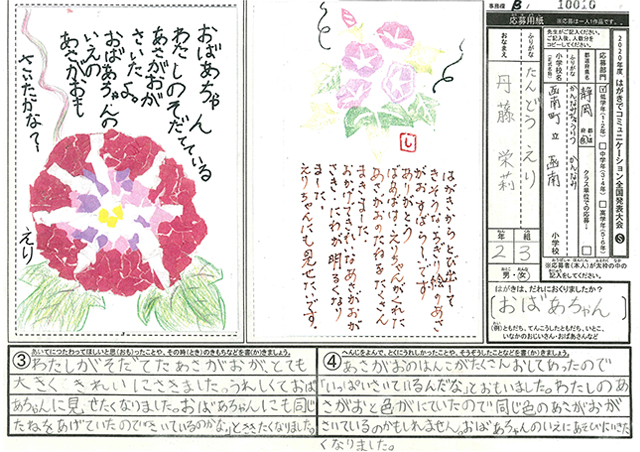 おばあちゃん
わたしのそだてている
あさがおが
さいたよ。
おばあちゃんの
いえの
あさがおも
さいたかな?
えり
はがきからとび出して
きそうなちぎり絵のあさ
がおすばらしいです。
ありがとう
ばあばは、えりちゃんがくれた
あさがおのたねをたくさん
まきました。
おかげできれいなあさがおが
さき、にわが明るくなり
ました。
えりちゃんにも見せたいです。
10010
応募用紙
※応募は一人1作品です。
2020年度 はがきでコミュニケーション全国発表大会
先生がご記入ください。
ご記入後、人数分を
コピーしてください。
応募部門
低学年(1・2年)
中学年(3・4年)
高学年(5・6年)
都道府県名
静岡
小学校名
函南町立 函南 小学校
クラス単位での応募
ふりがな
たんどう えり
おなまえ
丹藤 栄莉
年 組
2 3
男・女
※応募者(本人)が太枠の中の
記入をしてください。
はがきは、だれにおくりましたか?
(おばあちゃん)
(例)ともだち、てんこうしたともだち、いとこ、
いなかのおじいさん・おばあさんなど
③ あいてにつたわってほしいと思(おも)ったことや、その時(とき)のきもちなどを書(か)きましょう。
わたしがそだてたあさがおが、とても
大きくきれいにさきました。うれしくておば
あちゃんに見せたくなりました。おばあちゃんにも同じ
たねをあげていたので「さいているのかな」とききたくなりました。
④ へんじをよんで、とくにうれしかったことや、そうぞうしたことなどを書(か)きましょう。
あさがおのはんこがたくさんおしてあったので
「いっぱいさいているんだな」とおもいました。わたしのあ
さがおと色がにていたので同じ色のあさがおが
さいているのかもしれません。おばあちゃんのいえにあそびにいきた
くなりました。